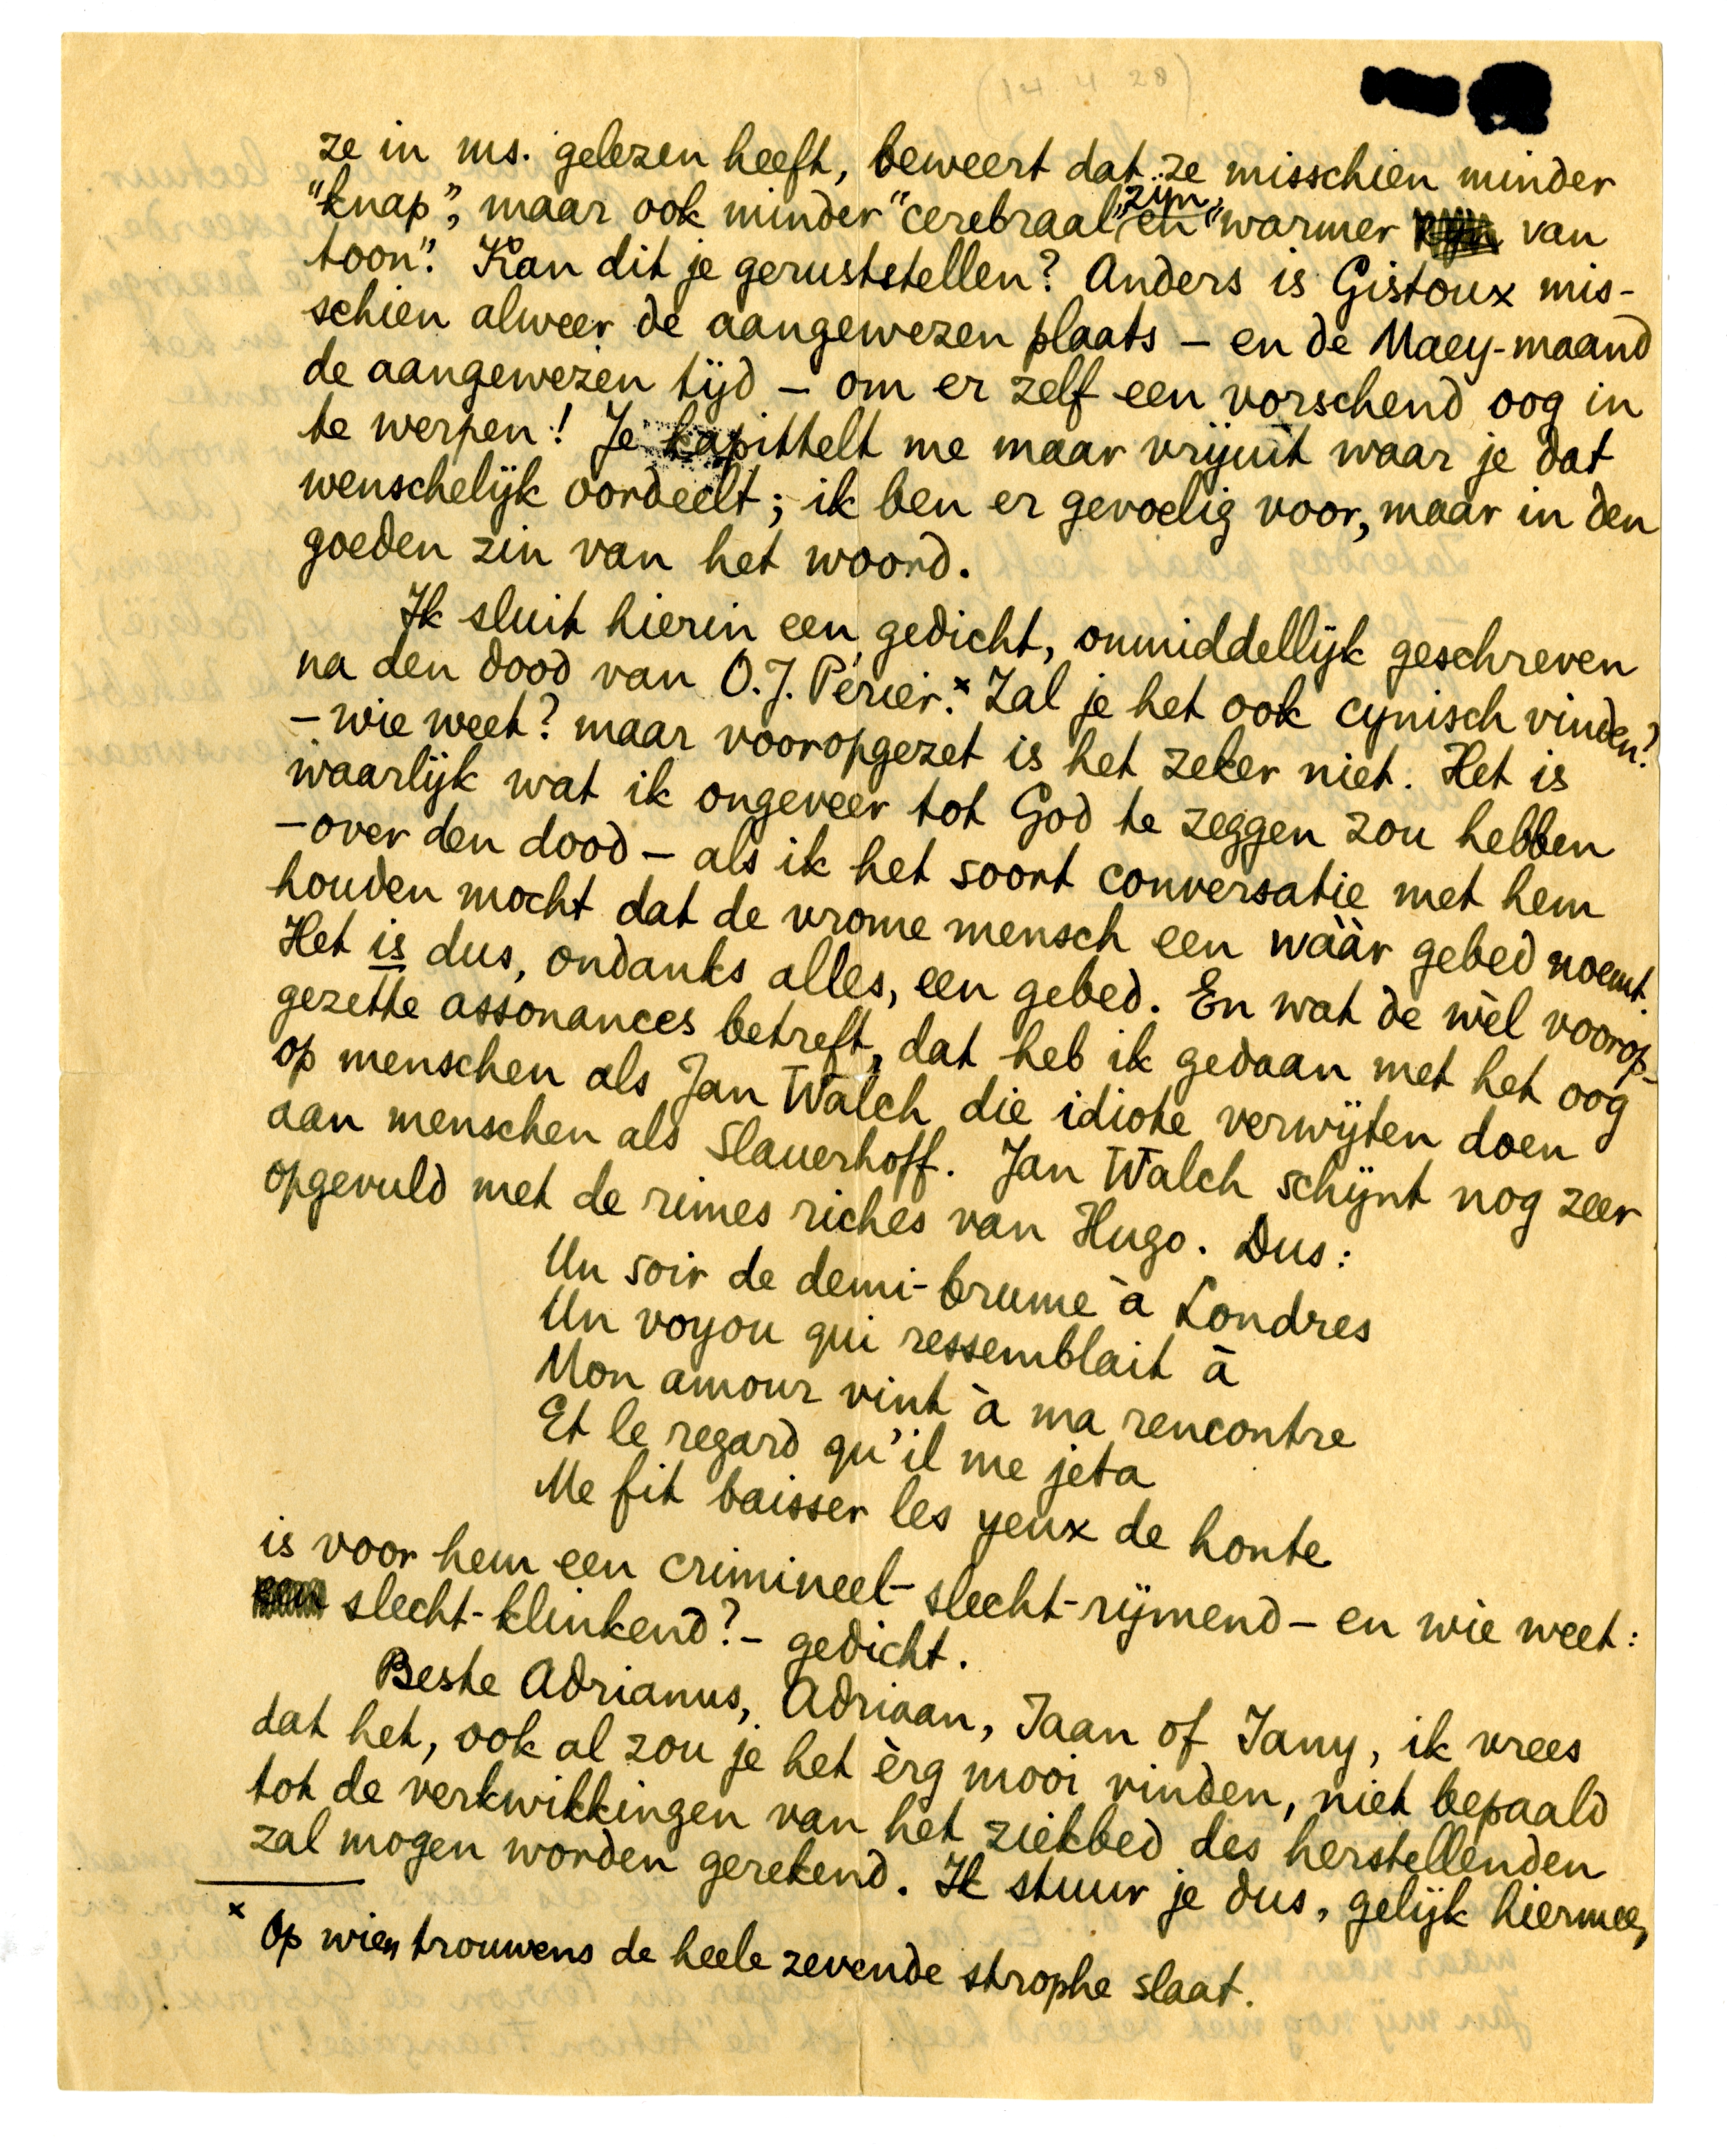 (14 4 28)
ze in ms. gelezen heeft, beweert dat ze misschien minder
"knap", maar ook minder "cerebraal" zijn, en "warmer van
toon". Kan dit je geruststellen? Anders is Gistoux mis-
schien alweer de aangewezen plaats – en de Maey-maand
de aangewezen tijd – om er zelf een vorschend oog in
te werpen! Je kapittelt me maar vrijuit waar je dat
wenschelijk oordeelt; ik ben er gevoelig voor, maar in den
goeden zin van het woord.
Ik sluit hierin een gedicht, onmiddellijk geschreven
na den dood van O.J. Périer.× Zal je het ook cynisch vinden?
– wie weet? maar vooropgezet is het zeker niet. Het is
waarlijk wat ik ongeveer tot God te zeggen zou hebben
– over den dood – als ik het soort conversatie met hem
houden mocht dat de vrome mensch een wààr gebed noemt.
Het is dus, ondanks alles, een gebed. En wat de wèl voorop-
gezette assonances betreft, dat heb ik gedaan met het oog
op menschen als Jan Walch die idiote verwijten doen
aan menschen als Slauerhoff. Jan Walch schijnt nog zeer
opgevuld met de rimes riches van Hugo. Dus:
Un soir de demi-brume à Londres
Un voyou qui ressemblait à
Mon amour vint à ma rencontre
Et le regard qu'il me jeta
Me fit baisser les yeux de honte
is voor hem een crimineel-slecht-rijmend – en wie weet:
slecht-klinkend? – gedicht.
Beste Adrianus, Adriaan, Jaan of Jany, ik vrees
dat het, ook al zou je het èrg mooi vinden, niet bepaald
tot de verkwikkingen van het ziekbed des herstellenden
zal mogen worden gerekend. Ik stuur je dus, gelijk hiermee,
× Op wien trouwens de heele zevende strophe slaat.